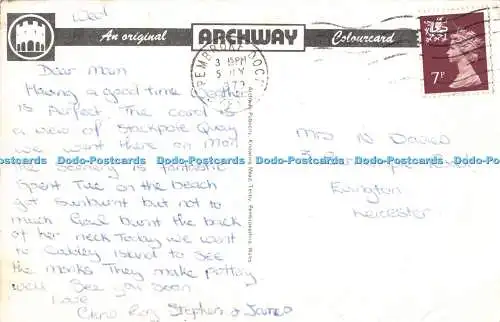 Wed
An original ARCHWAY Colourcard
PEMBROKE DOCK
3 15PM
5 JLY
7P
Dear Mam
Having a good time weather
is Perfect. The card is
a view of Stackpole Quay
we went there on Mon
the Scenery is fantastic
Spent Tue on the beach
got Sunburnt but not to
much Gail burnt the back
of her neck Today we went
to Caldey Island to See
the monks They make pottery
well See you soon
Love
Chris Roy Stephen & James
Mrs N Davies
Evington
Leicester
Dodo-Postcards Dodo-Postcards Dodo-Postcards Dodo-Postcards Dodo-Postcards